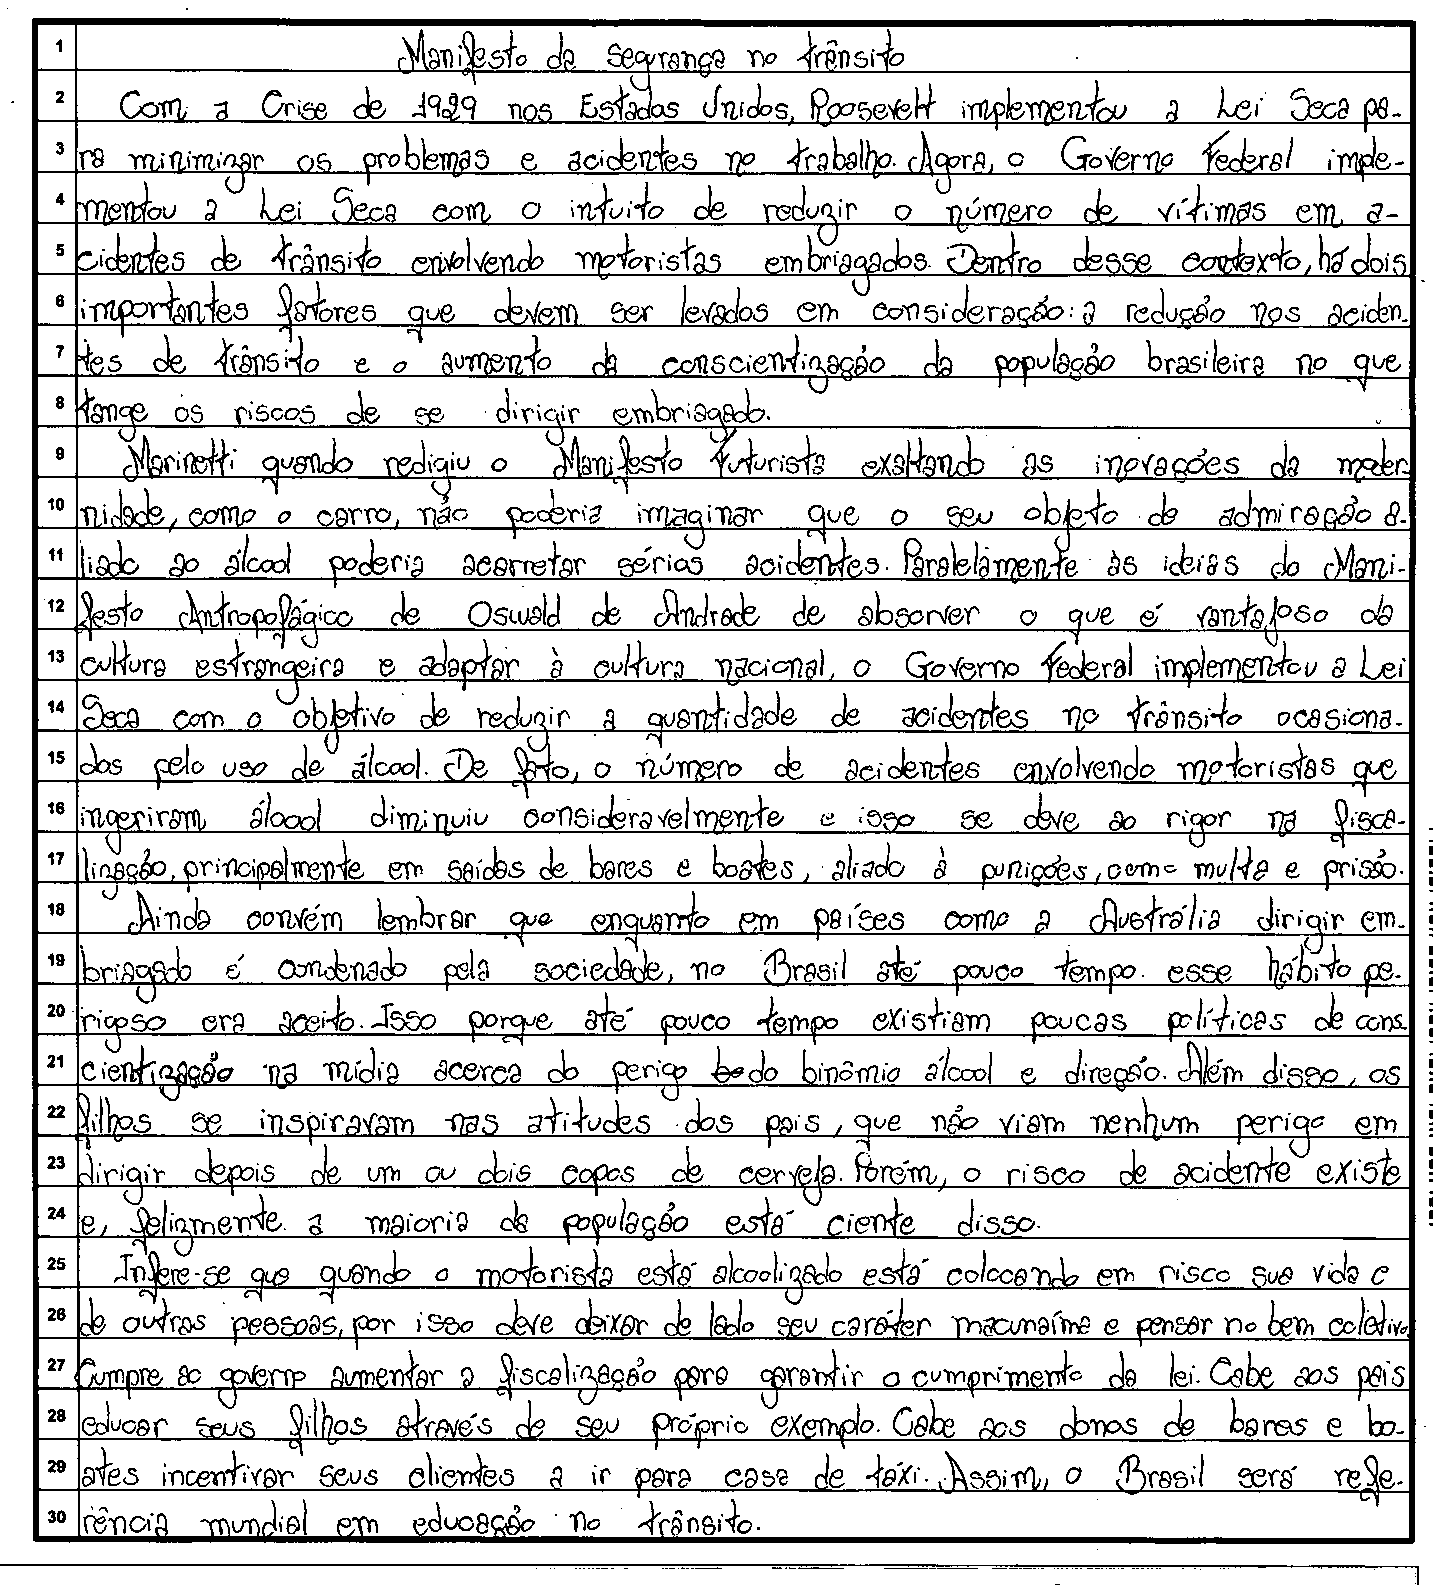 1 Manifesto da segurança no trânsito
2 Com a Crise de 1929 nos Estados Unidos, Roosevelt implementou a Lei Seca pa-
3 ra minimizar os problemas e acidentes no trabalho. Agora, o Governo Federal imple-
4 mentou a Lei Seca com o intuito de reduzir o número de vítimas em a-
5 cidentes de trânsito envolvendo motoristas embriagados. Dentro desse contexto, há dois
6 importantes fatores que devem ser levados em consideração: a redução nos aciden-
7 tes de trânsito e o aumento da conscientização da população brasileira no que
8 tange os riscos de se dirigir embriagado.
9 Marinetti quando redigiu o Manifesto Futurista exaltando as inovações da moder-
10 nidade, como o carro, não poderia imaginar que o seu objeto de admiração a-
11 liado ao álcool poderia acarretar sérios acidentes. Paralelamente às ideias do Mani-
12 festo Antropofágico de Oswald de Andrade de absorver o que é vantajoso da
13 cultura estrangeira e adaptar à cultura nacional, o Governo Federal implementou a Lei
14 Seca com o objetivo de reduzir a quantidade de acidentes no trânsito ocasiona-
15 dos pelo uso de álcool. De fato, o número de acidentes envolvendo motoristas que
16 ingeriram álcool diminuiu consideravelmente e isso se deve ao rigor na fisca-
17 lização, principalmente em saídas de bares e boates, aliado à punições, como multa e prisão.
18 Ainda convém lembrar que enquanto em países como a Austrália dirigir em-
19 briagado é condenado pela sociedade, no Brasil até pouco tempo esse hábito pe-
20 rigoso era aceito. Isso porque até pouco tempo existiam poucas políticas de cons-
21 cientização na mídia acerca do perigo do binômio álcool e direção. Além disso, os
22 filhos se inspiravam nas atitudes dos pais, que não viam nenhum perigo em
23 dirigir depois de um ou dois copos de cerveja. Porém, o risco de acidente existe
24 e, felizmente a maioria da população está ciente disso.
25 Infere-se que quando o motorista está alcoolizado está colocando em risco sua vida e
26 de outras pessoas, por isso deve deixar de lado seu caráter macunaíma e pensar no bem coletivo.
27 Cumpre ao governo aumentar a fiscalização para garantir o cumprimento da lei. Cabe aos pais
28 educar seus filhos através de seu próprio exemplo. Cabe aos donos de bares e bo-
29 ates incentivar seus clientes a ir para casa de táxi. Assim, o Brasil será refe-
30 rência mundial em educação no trânsito.